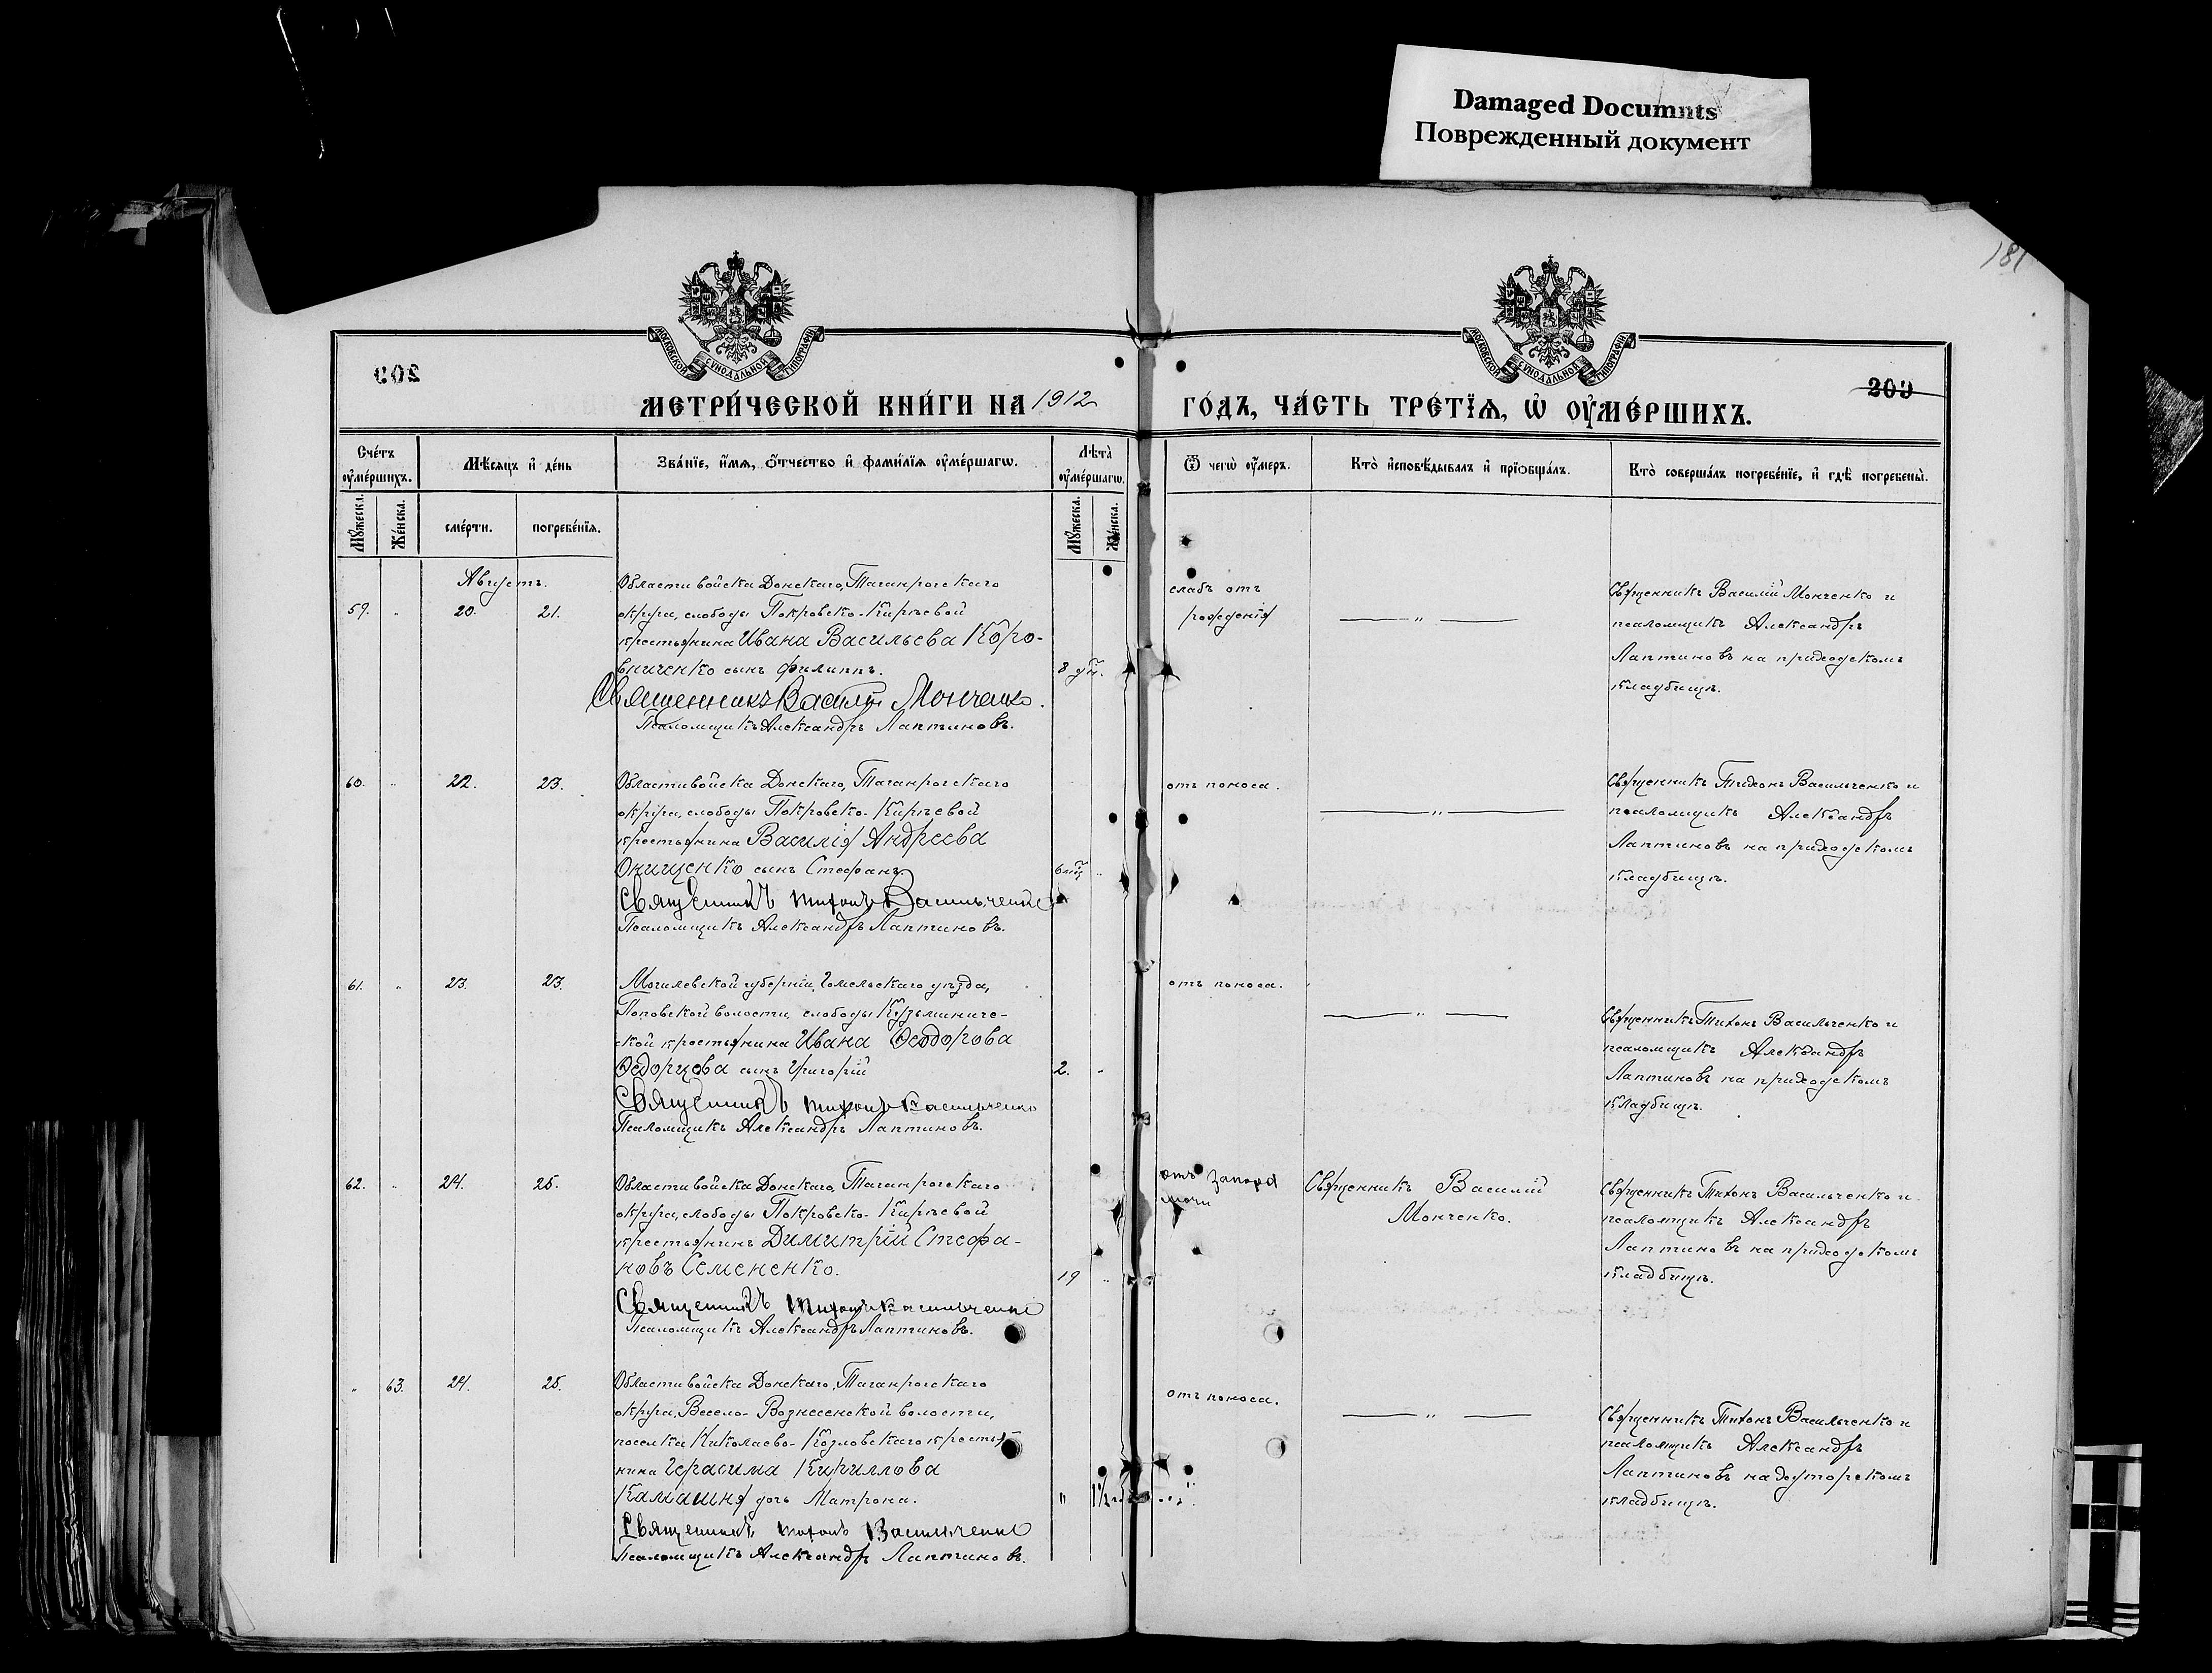 Damaged Documnts
Поврежденный документ
181
МОСКОВСКОЙ СУНОДАЛЬНОЙ ТИПОГРАФІИ
МОСКОВСКОЙ СУНОДАЛЬНОЙ ТИПОГРАФІИ
209
МЕТРИ́ЧЕСКОЙ КНИ́ГИ НА 1912 ГО́ДЪ, ЧА́СТЬ ТРЕ́ТЇѦ, Ѡ҆ ОУ҆МЕ́РШИХЪ.
Сче́тъ оу҆ме́ршихъ.
Мѣ́сяцъ и҆ де́нь
Зва́нїе, и҆́мѧ, ѻ҆́тчество и҆ фами́лїѧ оу҆ме́ршагѡ.
Лѣта̀ оу҆ме́ршагѡ.
Ѿ чегѡ̀ оу҆́меръ.
Кто̀ и҆сповѣ́дывалъ и҆ прїѻбща́лъ.
Кто̀ соверша́лъ погребе́нїе, и҆ гдѣ̀ погребены̀.
Мꙋ́жеска.
Же́нска.
сме́рти.
погребе́нїѧ.
Мꙋ́жеска.
Же́нска.
Августъ.
59. " 20. 21.
Области войска Донскаго, Таганрогскаго
округа, слободы Покровско-Кирѣевой
крестьянина Ивана Васильева Коро-
вниченко сынъ Филиппъ.
8 дн.
Священникъ Василій Монченко.
Псаломщикъ Александръ Лаптиновъ.
слабъ отъ
рожденія
"
Священникъ Василій Монченко и
псаломщикъ Александръ
Лаптиновъ на приходскомъ
кладбищѣ.
60. " 22. 23.
Области войска Донскаго, Таганрогскаго
округа, слободы Покровско-Кирѣевой
крестьянина Василія Андреева
Онищенко сынъ Стефанъ
6 мц "
Священникъ Тихонъ Васильченко
Псаломщикъ Александръ Лаптиновъ.
отъ поноса.
"
Священникъ Тихонъ Васильченко и
псаломщикъ Александръ
Лаптиновъ на приходскомъ
кладбищѣ.
61. " 23. 23.
Могилевской губерніи, Гомельскаго уѣзда,
Поповской волости, слободы Кузьминиче-
ской крестьянина Ивана Ѳеодорова
Ѳедорцова сынъ Григорій
2. "
Священникъ Тихонъ Васильченко
Псаломщикъ Александръ Лаптиновъ.
отъ поноса.
"
Священникъ Тихонъ Васильченко и
псаломщикъ Александръ
Лаптиновъ на приходскомъ
кладбищѣ.
62. " 24. 25.
Области войска Донскаго, Таганрогскаго
округа, слободы Покровско-Кирѣевой
крестьянинъ Димитрій Стефа-
новъ Семененко.
19 "
Священникъ Тихонъ Васильченко
Псаломщикъ Александръ Лаптиновъ.
отъ запора
мочи
Священникъ Василій
Монченко.
Священникъ Тихонъ Васильченко и
псаломщикъ Александръ
Лаптиновъ на приходскомъ
кладбищѣ.
" 63. 24. 25.
Области войска Донскаго, Таганрогскаго
округа, Весело-Вознесенской волости,
поселка Николаево-Козловскаго крестья-
нина Герасима Кириллова
Камашня дочь Матрона.
" 1½
Священникъ Тихонъ Васильченко
Псаломщикъ Александръ Лаптиновъ.
отъ поноса.
"
Священникъ Тихонъ Васильченко и
псаломщикъ Александръ
Лаптиновъ на хуторскомъ
кладбищѣ.